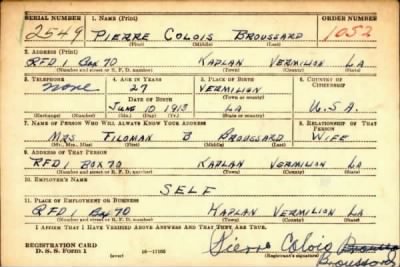 SERIAL NUMBER 1. NAME (Print) ORDER NUMBER
2549 PIERRE COLOIS BROUSSARD 1052
(First) (Middle) (Last)
2. ADDRESS (Print)
RFD 1 Box 70 KAPLAN VERMILION LA
(Number and street or R. F. D. number) (Town) (County) (State)
3. TELEPHONE 4. AGE IN YEARS 5. PLACE OF BIRTH 6. COUNTRY OF CITIZENSHIP
None 27 VERMILION
DATE OF BIRTH (Town or county)
JUNE 10 1913 LA U.S.A.
(Exchange) (Number) (Mo.) (Day) (Yr.) (State or country)
7. NAME OF PERSON WHO WILL ALWAYS KNOW YOUR ADDRESS 8. RELATIONSHIP OF THAT PERSON
MRS FILOMAN B BROUSSARD WIFE
(Mr., Mrs., Miss) (First) (Middle) (Last)
9. ADDRESS OF THAT PERSON
RFD 1 BOX 70 KAPLAN VERMILION LA
(Number and street or R. F. D. number) (Town) (County) (State)
10. EMPLOYER'S NAME
SELF
11. PLACE OF EMPLOYMENT OR BUSINESS
RFD 1 Box 70 KAPLAN VERMILION LA
(Number and street or R. F. D. number) (Town) (County) (State)
I AFFIRM THAT I HAVE VERIFIED ABOVE ANSWERS AND THAT THEY ARE TRUE.
Pierre Colois
Broussard
REGISTRATION CARD
D. S. S. Form 1 (over) (Registrant's signature)